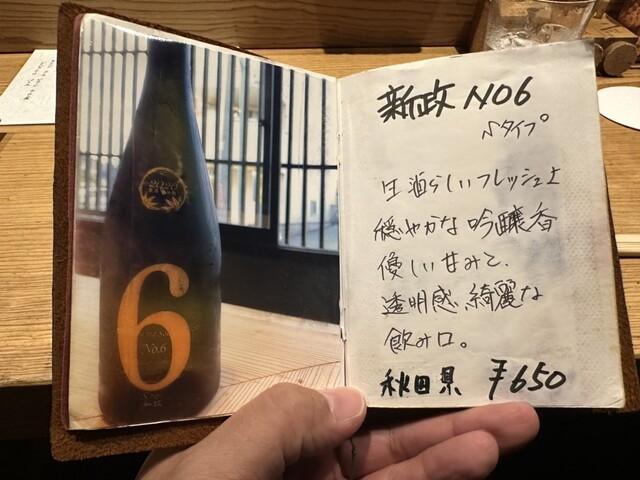 6
No.6
新政 NO6
Sタイプ
生酒らしいフレッシュと
穏やかな吟醸香
優しい甘みで、
透明感、綺麗な
飲み口。
秋田県 ¥650